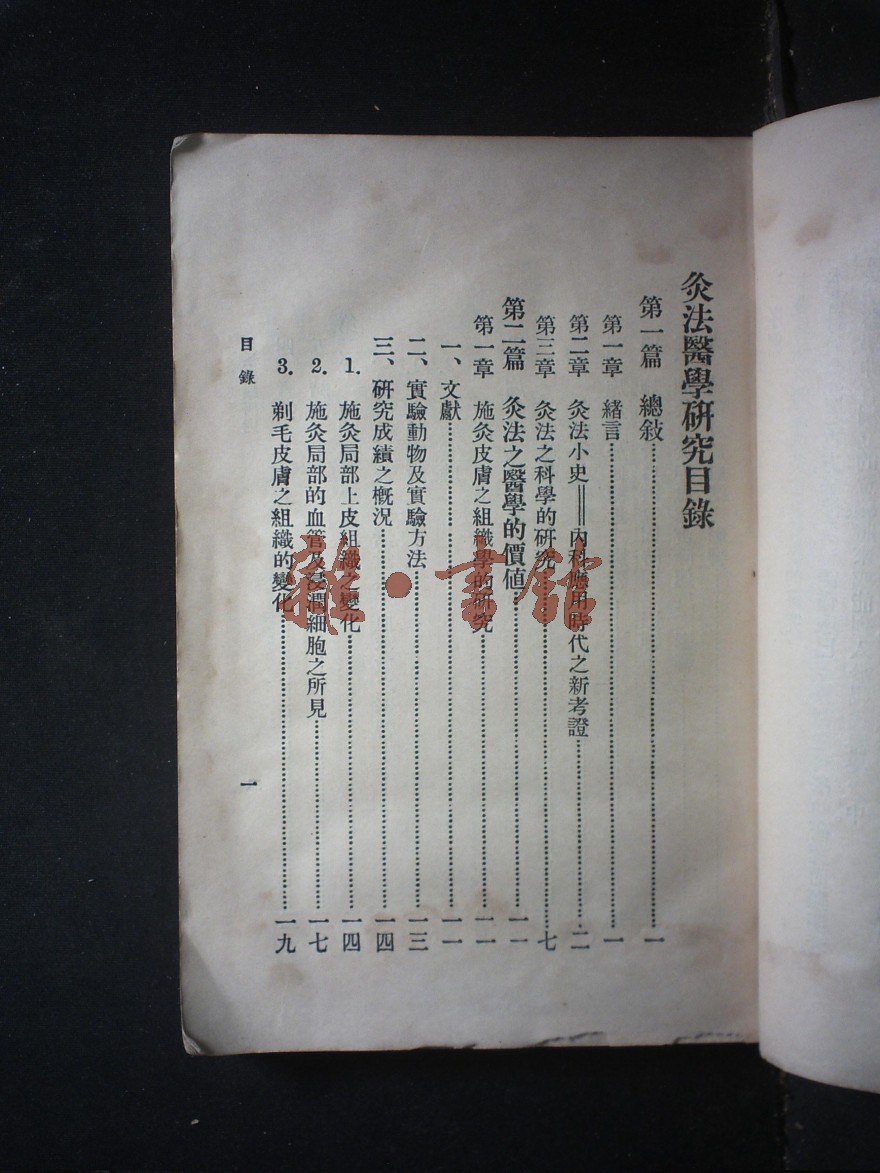 灸法醫學研究目錄
第一篇 總敍……一
第一章 緒言……一
第二章 灸法小史——內科應用時代之新考證……二
第三章 灸法之科學的研究……七
第二篇 灸法之醫學的價値……一一
第一章 施灸皮膚之組織學的研究……一一
一、文獻……一一
二、實驗動物及實驗方法……一三
三、研究成績之槪況……一四
1. 施灸局部上皮組織之變化……一四
2. 施灸局部的血管及浸潤細胞之所見……一七
3. 剃毛皮膚之組織的變化……一九
目錄
一
雜·書館